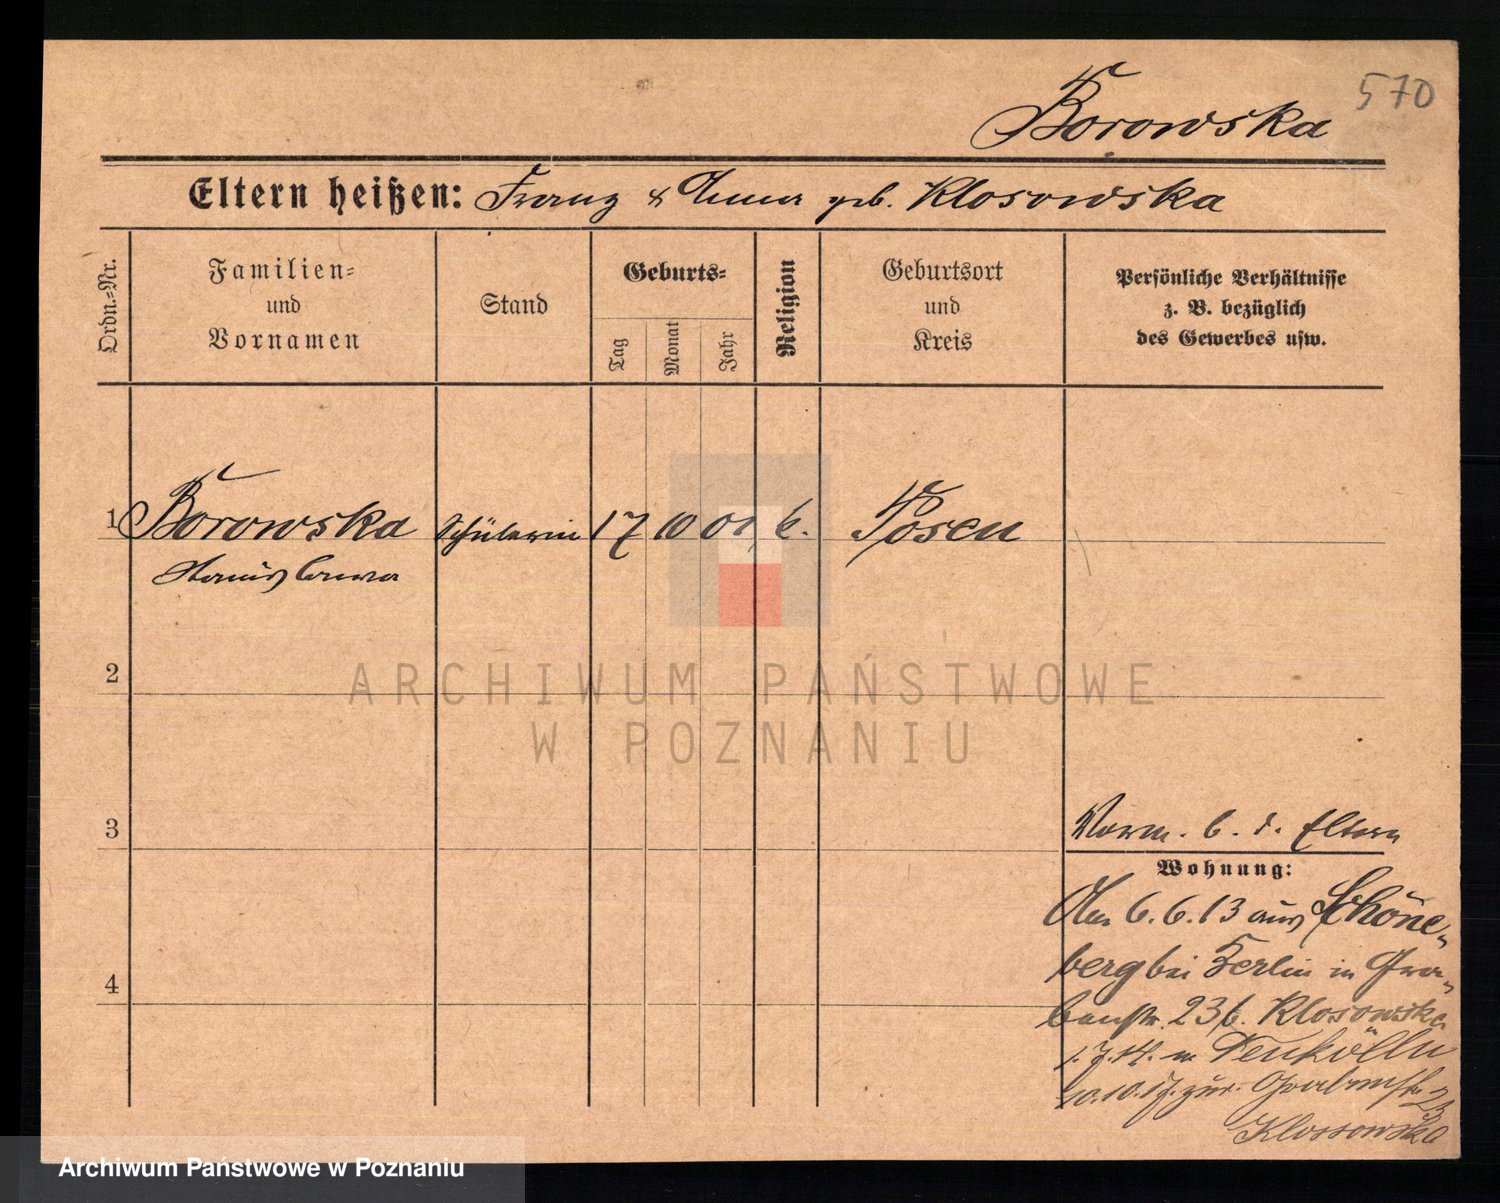 570
Borowska
Eltern heißen: Franz & Anna geb. Klosowska
Ordn.-Nr.
Familien-
und
Vornamen
Stand
Geburts-
Tag
Monat
Jahr
Religion
Geburtsort
und
Kreis
Persönliche Verhältnisse
z. B. bezüglich
des Gewerbes usw.
1 Borowska Schülerin 17 10 01 k. Posen
Stanislawa
2
ARCHIWUM PAŃSTWOWE
W POZNANIU
3
Vorm. b. d. Eltern
Wohnung:
Am 6.6.13 aus Schöne-
berg bei Berlin in Gra-
benstr. 23 b. Klosowska
1.7.14. n. Neukölln
10.17. zur. Grabenstr. 23
Klossowska
4
Archiwum Państwowe w Poznaniu